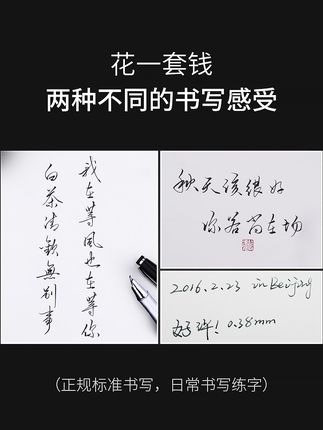 花一套钱
两种不同的书写感受
我在等风也在等你
白茶清欢無别事
秋天该很好
你若尚在场
2016.2.23 in Beijing
好评! 0.38mm
(正规标准书写,日常书写练字)